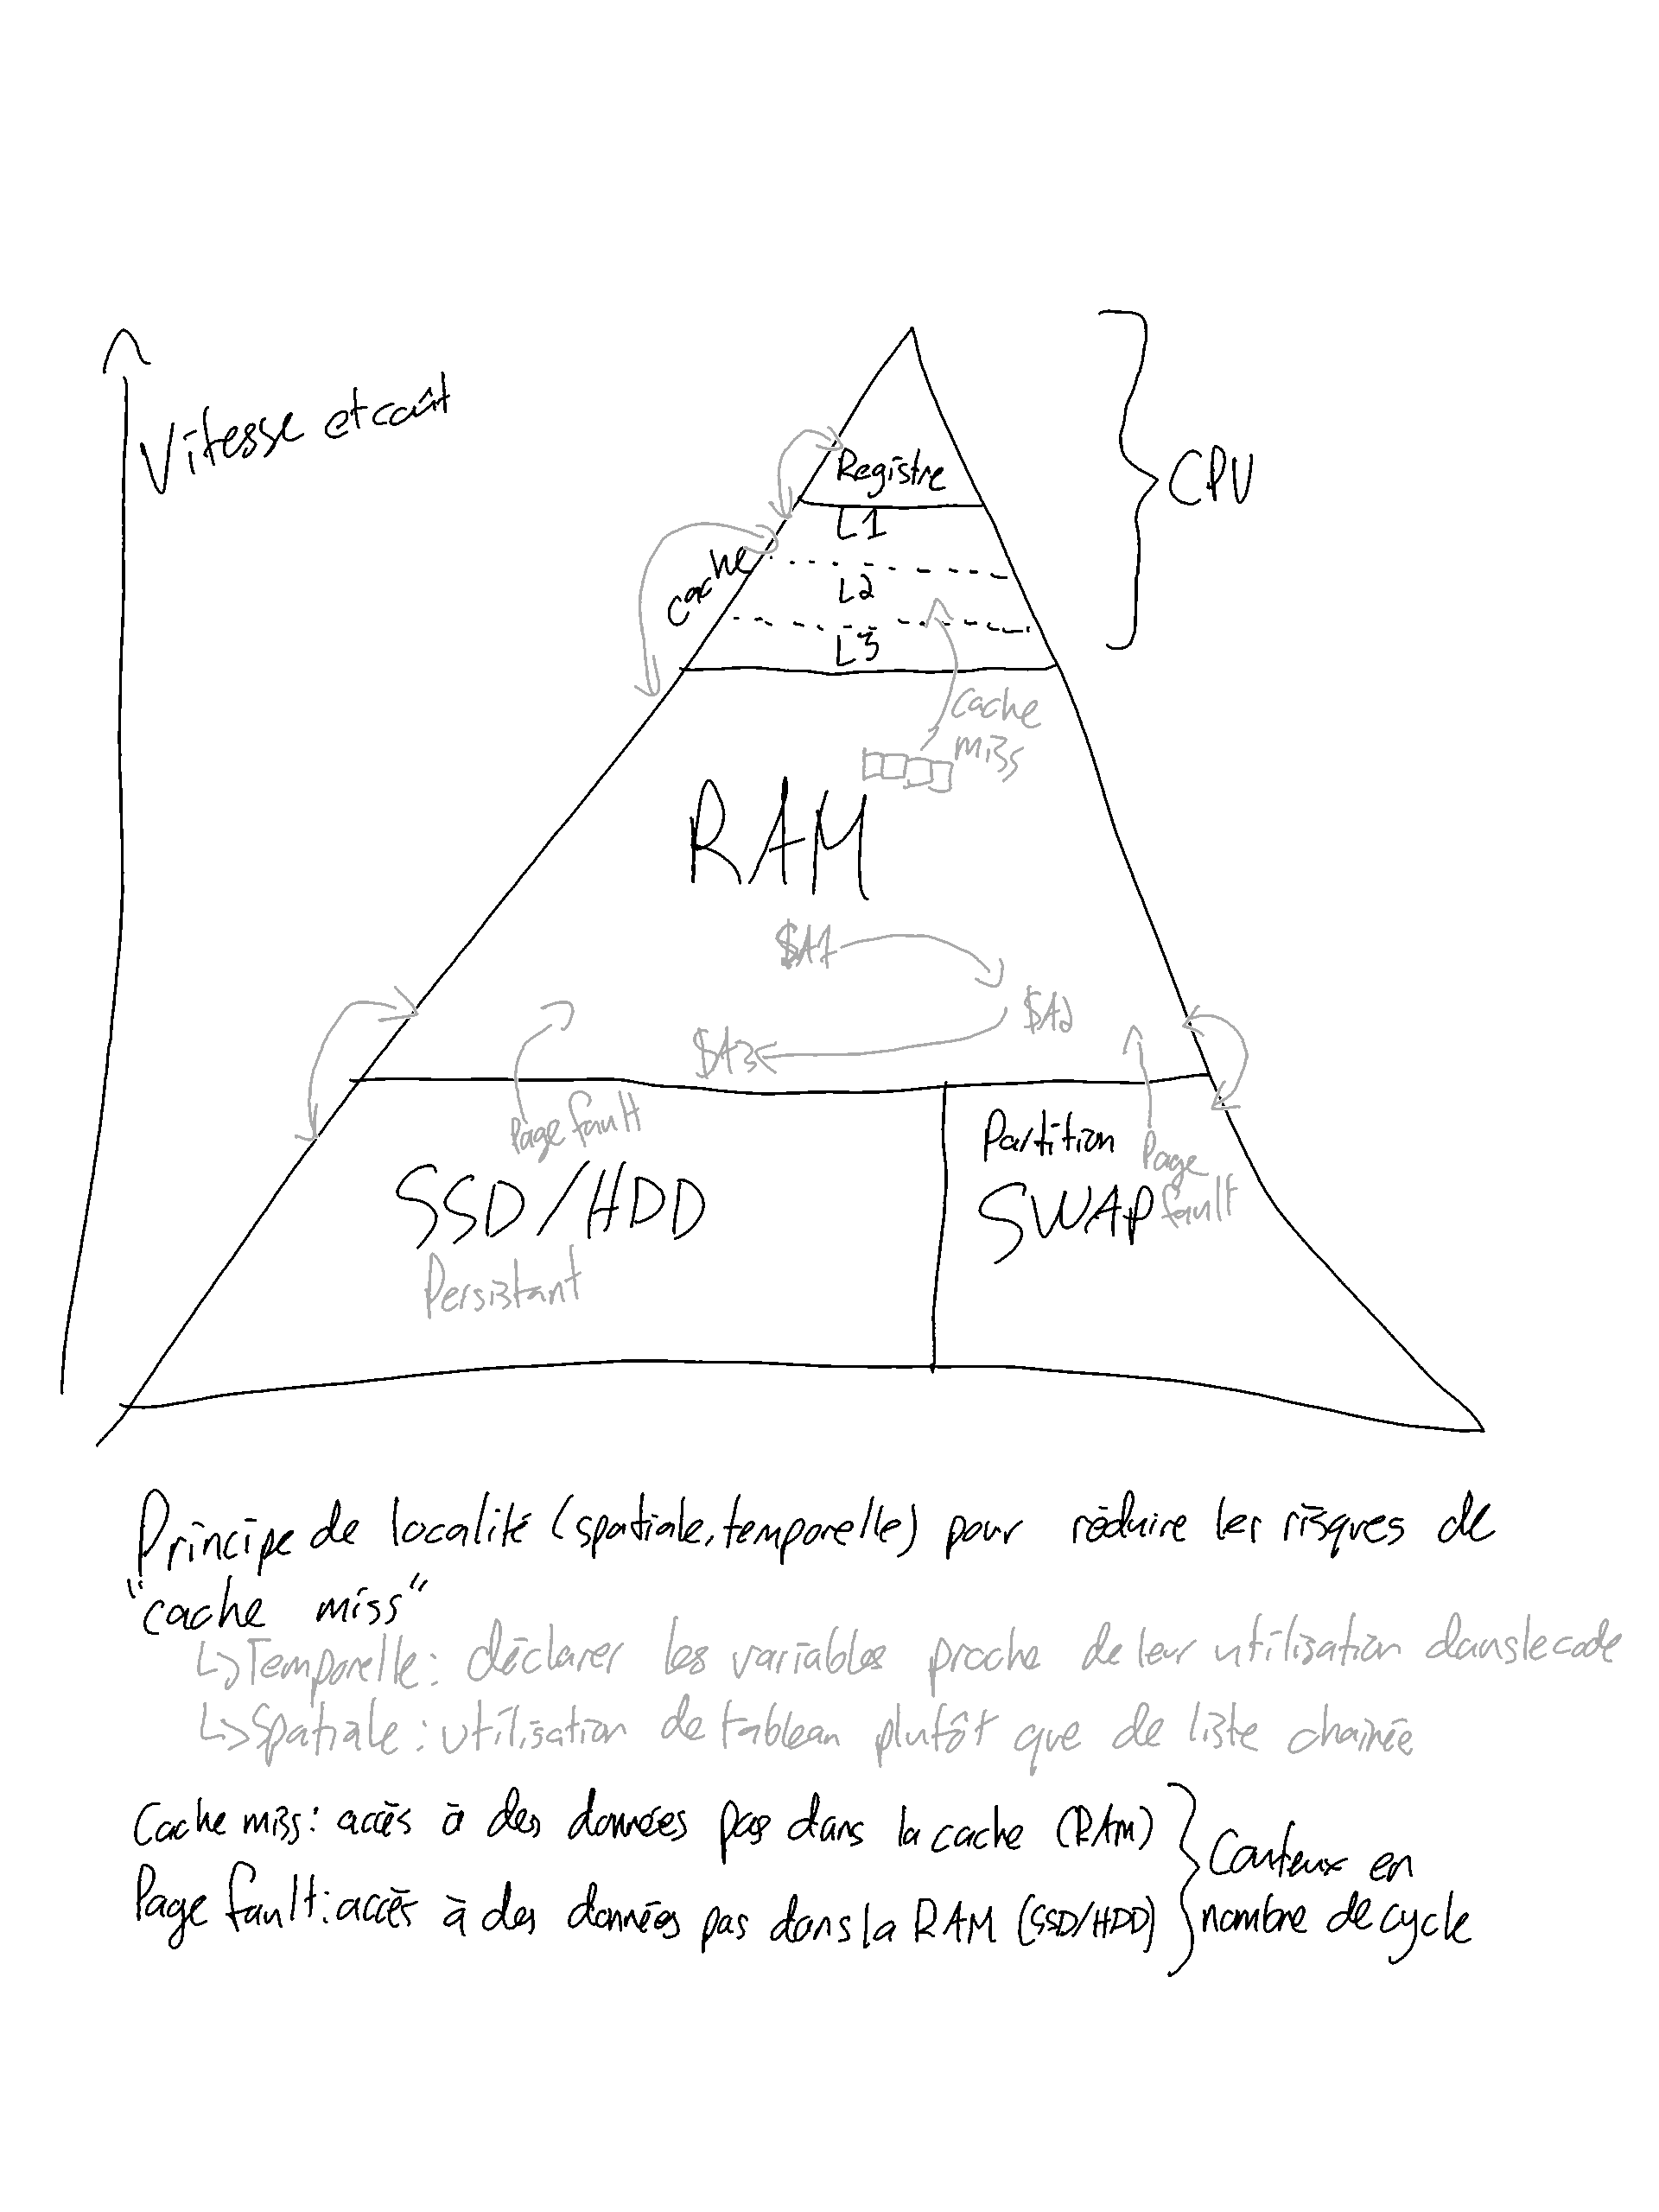 Vitesse et coût
Registre
L1
L2
L3
cache
CPU
cache
miss
RAM
$A1
$A2
$A3
Page fault
SSD/HDD
Persistant
Partition
SWAP
Page
fault
Principe de localité (spatiale, temporelle) pour réduire les risques de
"cache miss"
↳Temporelle: déclarer les variables proche de leur utilisation dans le code
↳Spatiale: utilisation de tableau plutôt que de liste chainée
Cache miss: accès à des données pas dans la cache (RAM)
Page fault: accès à des données pas dans la RAM (SSD/HDD)
Couteux en
nombre de cycle